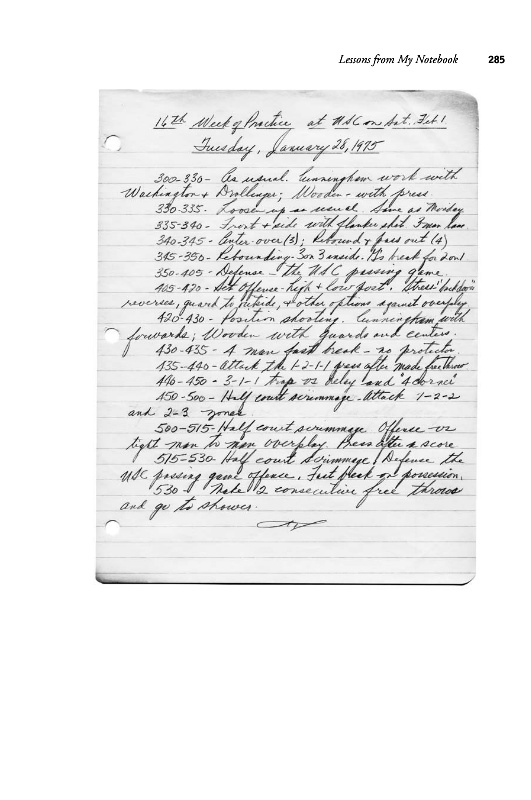 Lessons from My Notebook 285
16th Week of Practice at USC on Sat. Feb 1
Tuesday, January 28, 1975
300-330- As usual. Cunningham work with
Washington + Drollinger; Wooden - with press
330-335- Loosen up as usual. Same as Monday
335-340- Front + side with flander shot 3 man lane
340-345- Center over (3); Rebound + pass out (4)
345-350- Rebounding - 3 on 3 inside. break for 2 on 1
350-405- Defense - the USC passing game
405-420- Set Offense - high + low post. Stress "backdoor"
reverses, guard to outside, + other options against overplay
420-430- Position shooting. Cunningham with
forwards; Wooden with guards and centers.
430-435- 4 man fast break - no protector
435-440- Attack the 1-2-1-1 press after made free throw
440-450- 3-1-1 trap vs delay and "4 corner"
450-500- Half court scrimmage - Attack 1-2-2
and 2-3 zones
500-515- Half court scrimmage Offense vs
tight man to man overplay. Press after a score
515-530- Half court Scrimmage! Defense the
USC passing game offense. Fast break on possession.
530- Make 2 consecutive free throws
and go to shower.